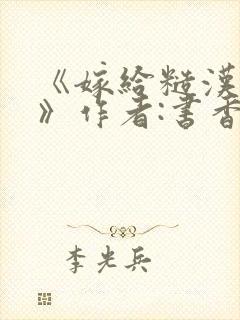 《嫁给糙汉
》作者:书香
李光兵